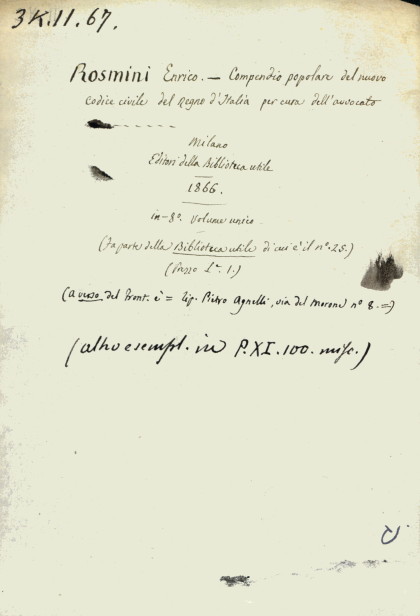 3K.11.67.
Rosmini Enrico. — Compendio popolare del nuovo
codice civile del Regno d'Italia per cura dell'avvocato
Milano
Editori della Biblioteca utile
1866.
in-8º. Volume unico.
(Fa parte della Biblioteca utile di cui è il nº. 25.)
(Prezzo L. 1.)
(a verso del front. è = Tip. Pietro Agnelli, via del Morone nº 8. =)
(altro esempl. in P.XI.100. misc.)